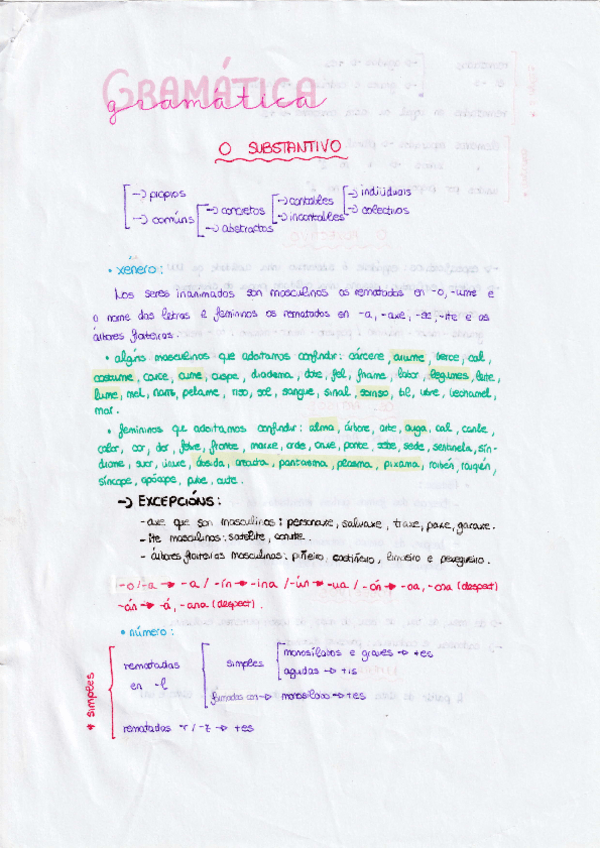 GRAMÁTICA
gramática
O SUBSTANTIVO
→ propios
→ comúns
→ concretos
→ abstractos
→ contables
→ incontables
→ individuais
→ colectivos
• xénero:
Los seres inanimados son masculinos os rematados en -o, -ume e
o nome das letras e femininos os rematados en -a, -axe, -se, -ite e as
árbores froiteiras.
• algúns masculinos que adoitamos confundir: cárcere, arume, berce, cal,
costume, couce, cume, cuspe, diadema, dote, fel, fname, labor, legumes, leite,
lume, mel, nariz, pelame, riso, sal, sangue, sinal, sorriso, til, ubre, bechamel,
mar.
• femininos que adoitamos confundir: alma, árbore, arte, auga, cal, canle,
calor, cor, dor, febre, fronte, marxe, orde, ponte, sebe, sede, sentinela, sín-
drome, suor, úlcera, ábsida, aracha, pantasma, plasma, pixama, raigón,
síncope, apócope, pube, cute.
→ EXCEPCIÓNS:
- axe que son masculinos: personaxe, salvaxe, traxe, paxe, garaxe.
- ite masculinos: satélite, convite.
- árbores froiteiras masculinas: piñeiro, castiñeiro, limoeiro e pexegueiro.
-o/-a → -a / -ín → -ina / -ún → -ua / -ón → -oa, -ona (despect)
-án → -á, -ana (despect).
• número:
* simples
rematadas
en -l
simples
monosílabos e graves → +es
agudas → +is
formadas con → monosílabo → +es
rematadas -r / -z → +es